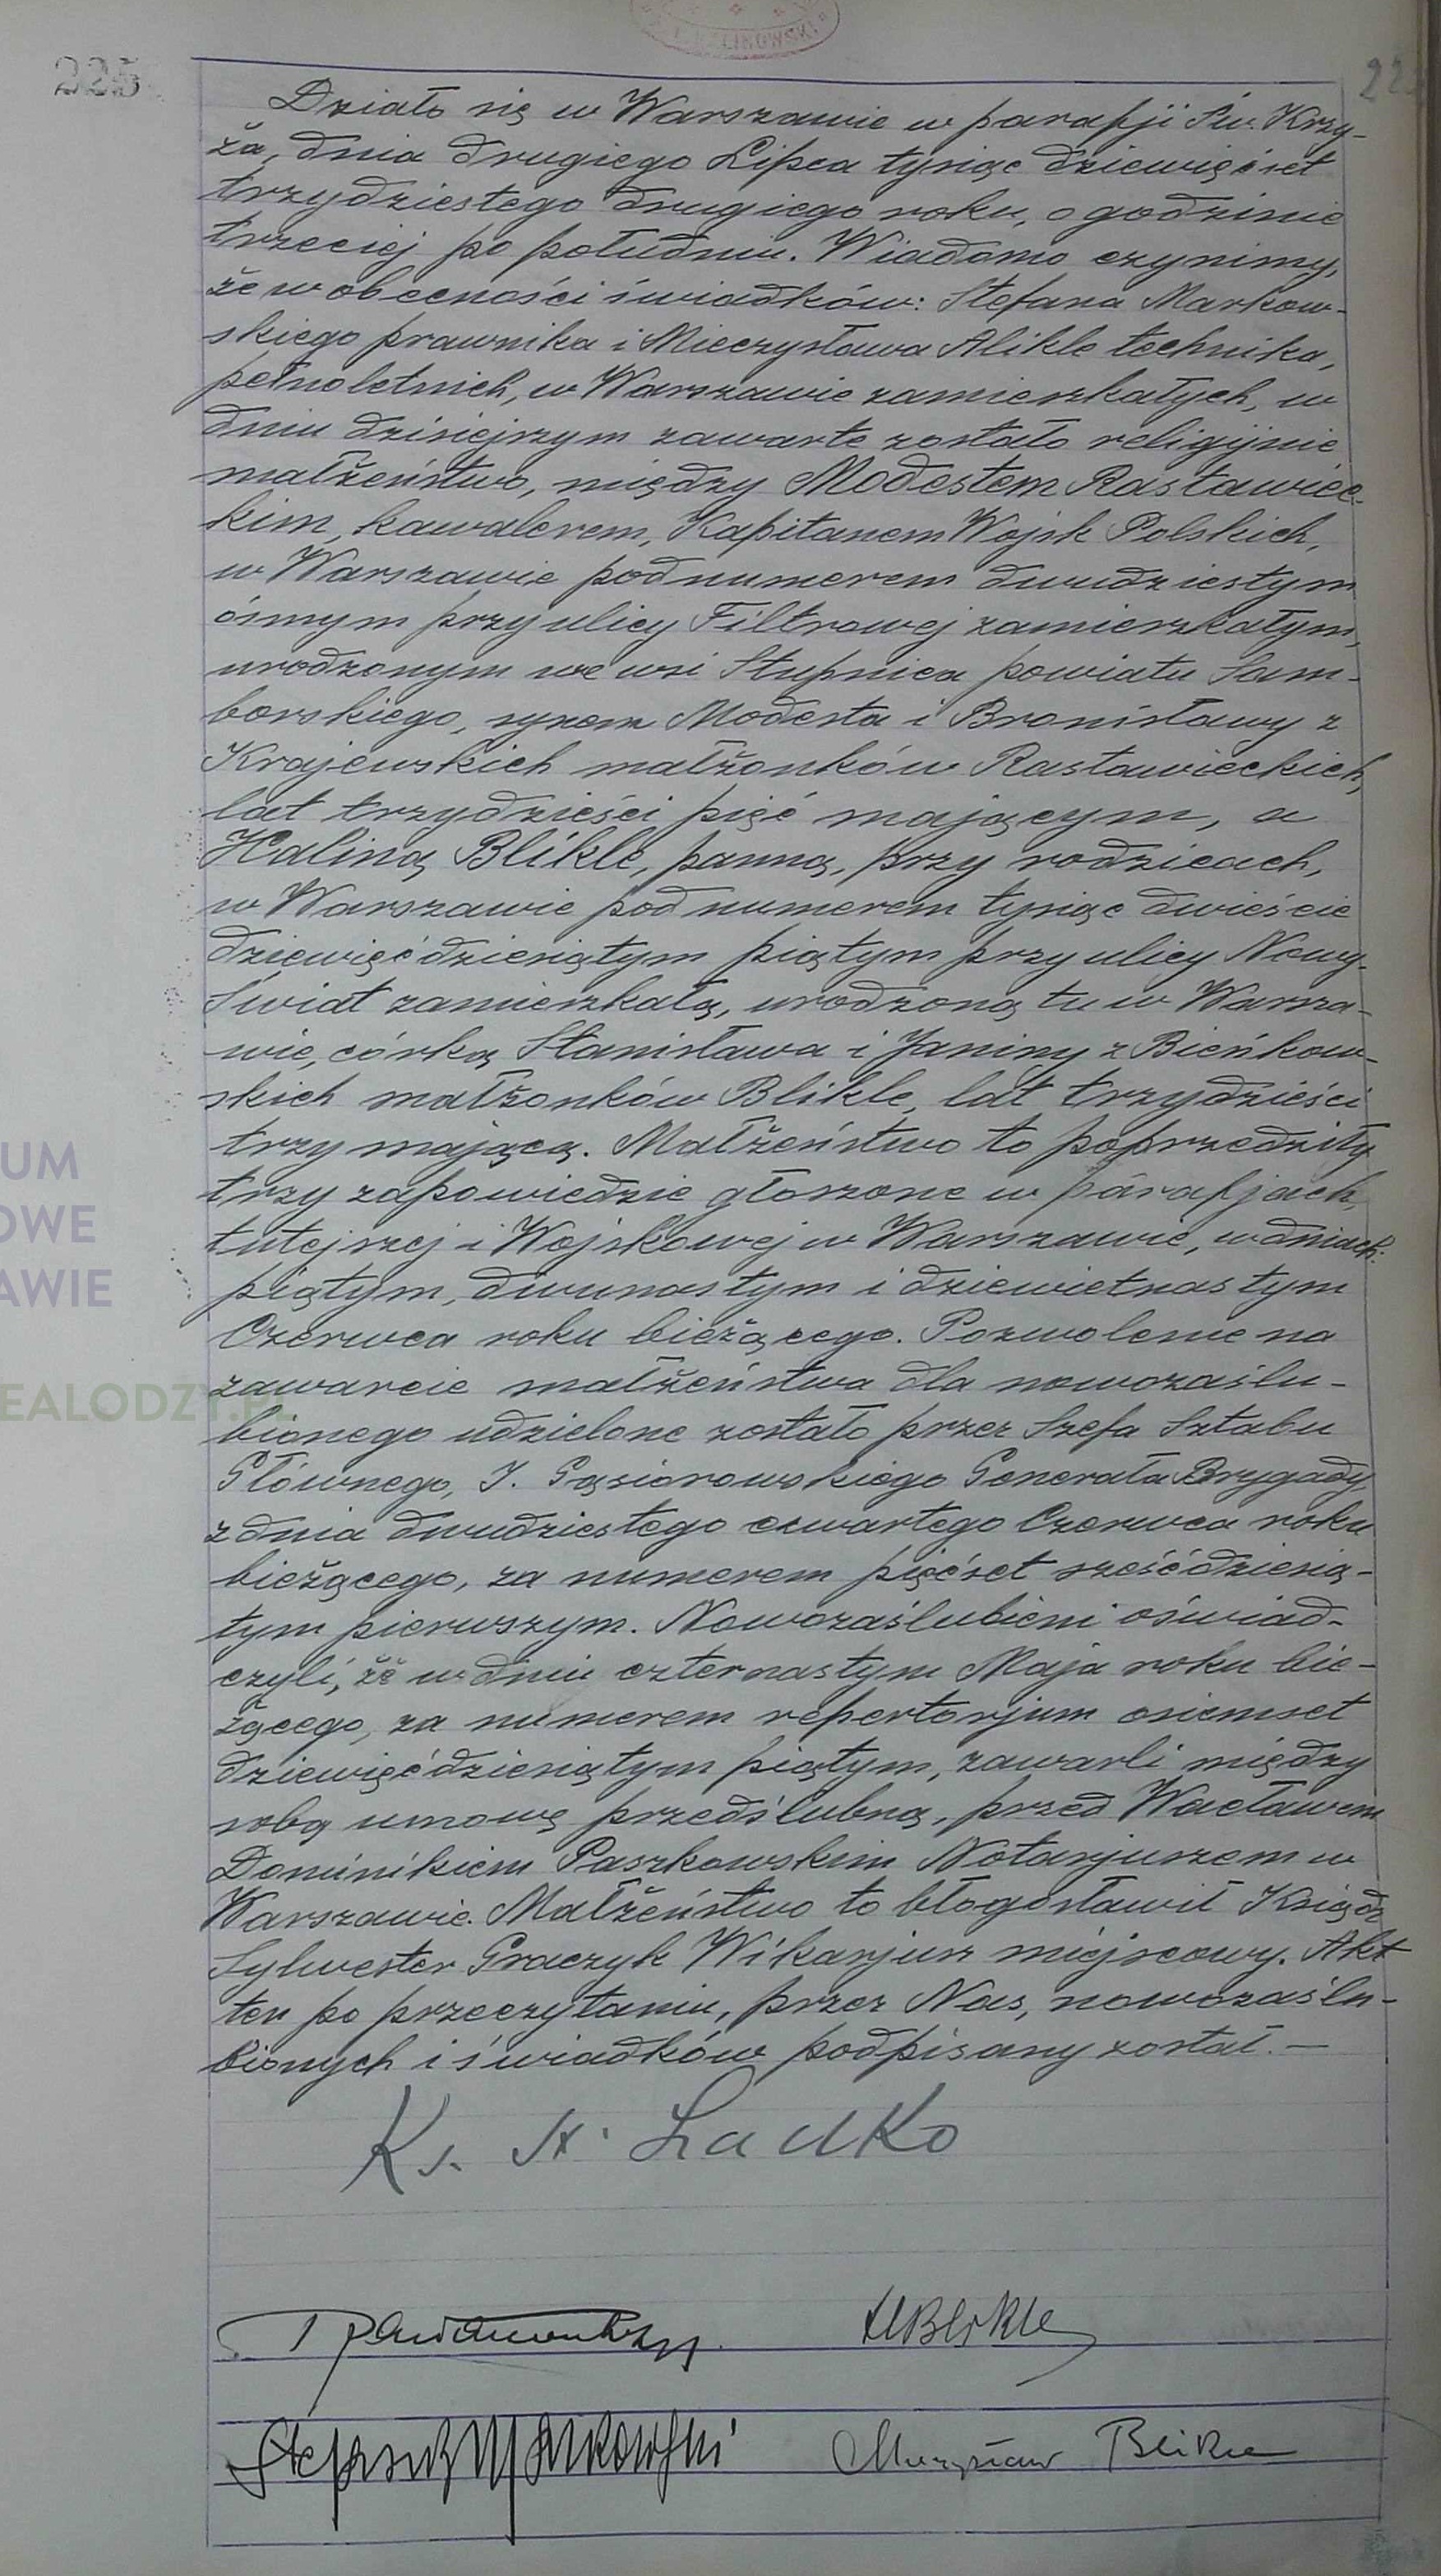 LINOWSKI
225
22
Działo się w Warszawie w parafji Św. Krzy-
ża, dnia drugiego Lipca tysiąc dziewięćset
trzydziestego drugiego roku, o godzinie
trzeciej po południu. Wiadomo czynimy,
że w obecności świadków: Stefana Markow-
skiego prawnika i Mieczysława Blikle technika,
pełnoletnich, w Warszawie zamieszkałych, w
dniu dzisiejszym zawarte zostało religijnie
małżeństwo, między Modestem Rastawiec-
kim, kawalerem, Kapitanem Wojsk Polskich,
w Warszawie pod numerem dwudziestym
ósmym przy ulicy Filtrowej zamieszkałym,
urodzonym we wsi Stupnica powiatu Sam-
borskiego, synem Modesta i Bronisławy z
Krajewskich małżonków Rastawieckich,
lat trzydzieści pięć mającym, a
Haliną Blikle, panną, przy rodzicach,
w Warszawie pod numerem tysiąc dwieście
dziewięćdziesiątym piątym przy ulicy Nowy-
Świat zamieszkałą, urodzoną tu w Warsza-
wie, córką Stanisława i Janiny z Bieńkow-
skich małżonków Blikle, lat trzydzieści
trzy mającą. Małżeństwo to poprzedziły
trzy zapowiedzie głoszone w parafjach,
tutejszej i Wojskowej w Warszawie, w dniach:
piątym, dwunastym i dziewietnastym
Czerwca roku bieżącego. Pozwolenie na
zawarcie małżeństwa dla nowozaślu-
bionego udzielone zostało przez Szefa Sztabu
Głównego, J. Gąsiorowskiego Generała Brygady,
z dnia dwudziestego czwartego Czerwca roku
bieżącego, za numerem pięćset sześćdziesią-
tym pierwszym. Nowozaślubieni oświad-
czyli, że w dniu czternastym Maja roku bie-
żącego, za numerem repertorjum osiemset
dziewięćdziesiątym piątym, zawarli między
sobą umowę przedślubną, przed Wacławem
Dominikiem Paszkowskim Notarjuszem w
Warszawie. Małżeństwo to błogosławił Ksiądz
Sylwester Graczyk Wikarjusz miejscowy. Akt
ten po przeczytaniu, przez Nas, nowozaślu-
bionych i świadków podpisany został. —
Ks. St.
HBlikle
Stefan Markowski Mieczysław Blikle
UM
OWE
AWIE
EALODZY.PL